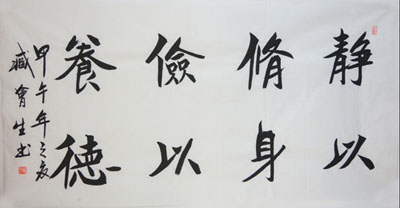 静以
脩身
儉以
養德
甲午年之夏
臧會生书